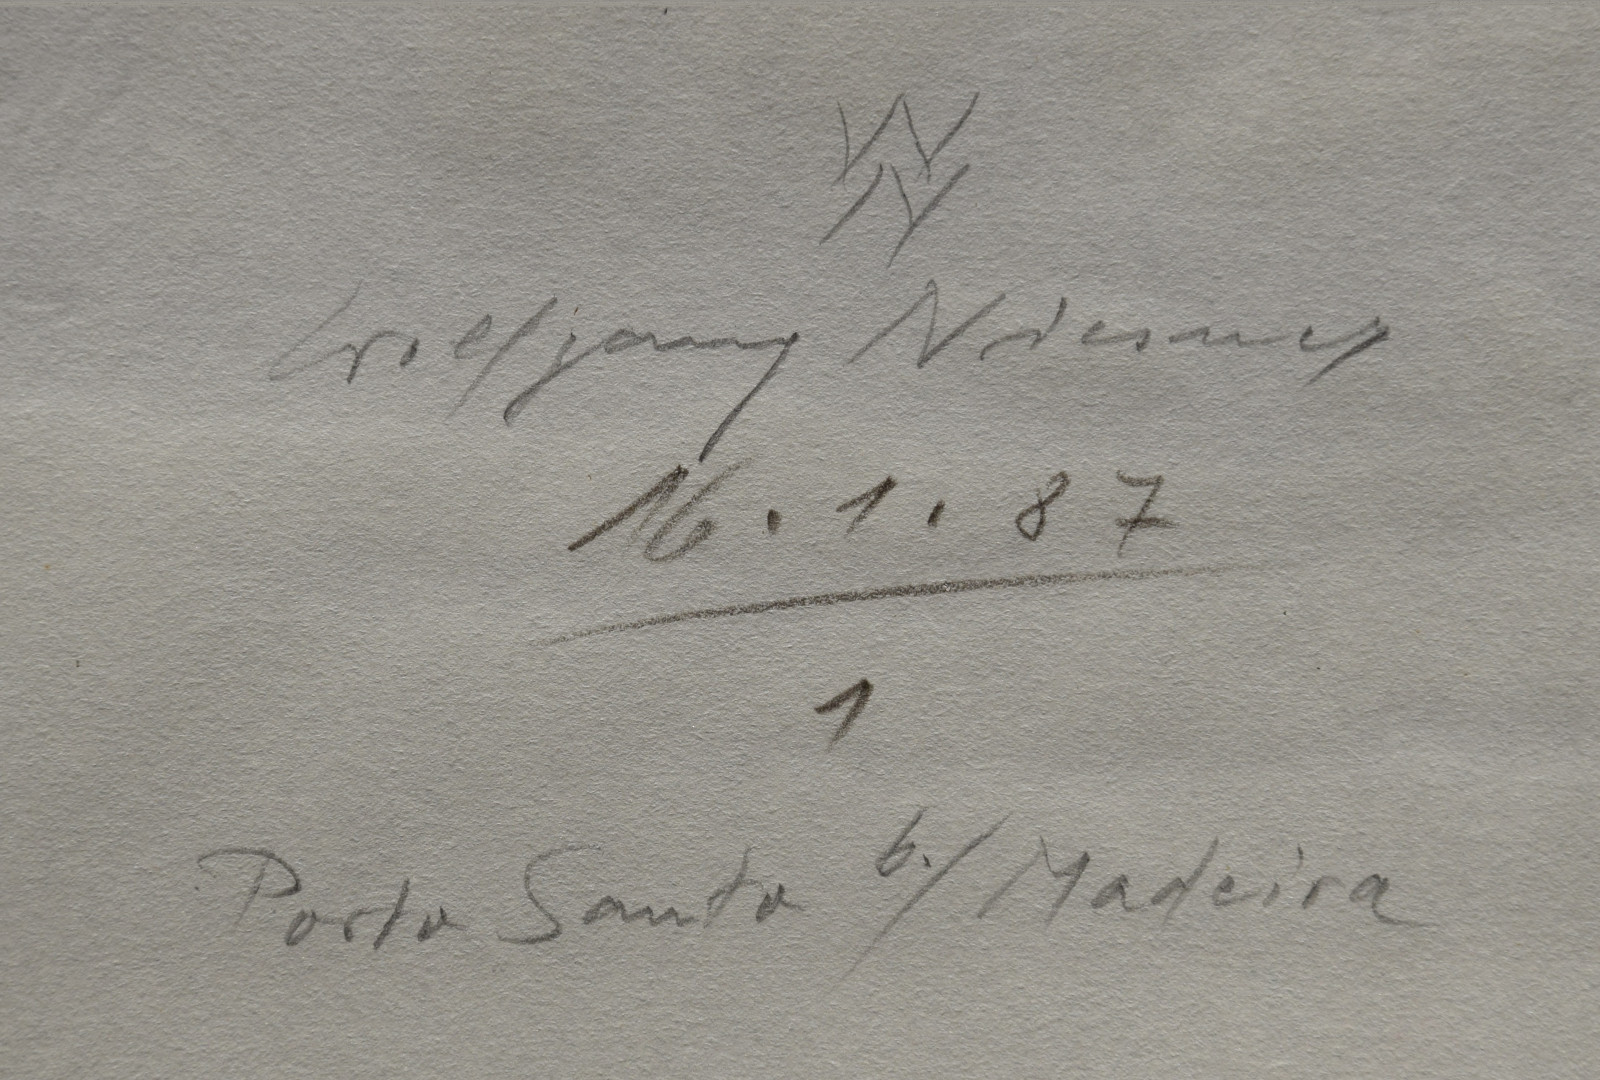 W
N
Wolfgang Niesner
16.1.87
1
Porto Santo b./Madeira